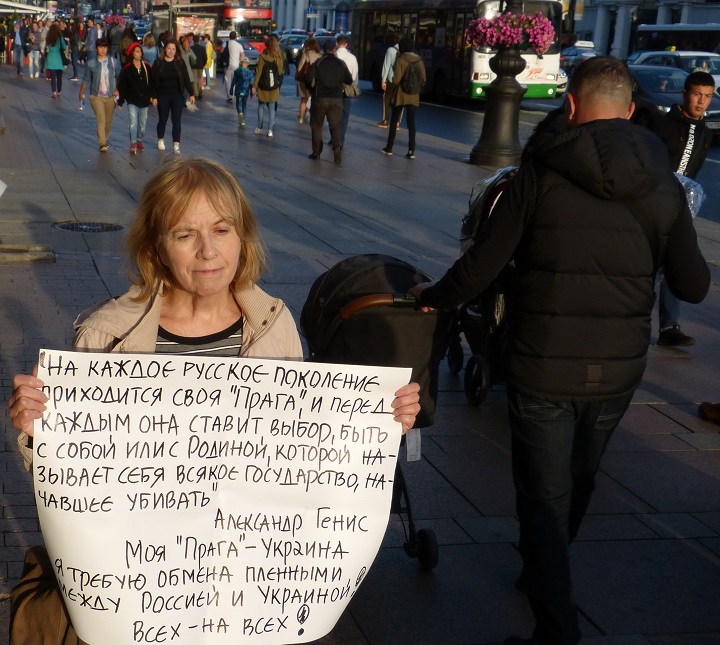 "НА КАЖДОЕ РУССКОЕ ПОКОЛЕНИЕ
ПРИХОДИТСЯ СВОЯ "ПРАГА", И ПЕРЕД
КАЖДЫМ ОНА СТАВИТ ВЫБОР, БЫТЬ
С СОБОЙ ИЛИ С РОДИНОЙ, КОТОРОЙ НА-
ЗЫВАЕТ СЕБЯ ВСЯКОЕ ГОСУДАРСТВО, НА-
ЧАВШЕЕ УБИВАТЬ"
АЛЕКСАНДР ГЕНИС
МОЯ "ПРАГА" - УКРАИНА
Я ТРЕБУЮ ОБМЕНА ПЛЕННЫМИ
МЕЖДУ РОССИЕЙ И УКРАИНОЙ!
ВСЕХ - НА ВСЕХ!